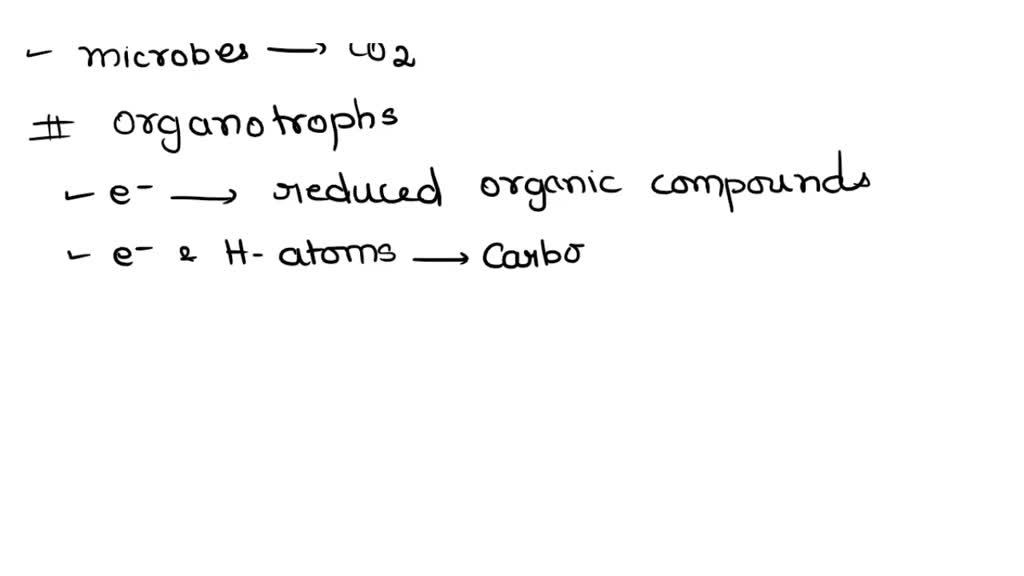 - microbes → CO2
# organotrophs
- e- → reduced organic compounds
- e- & H- atoms → Carbo